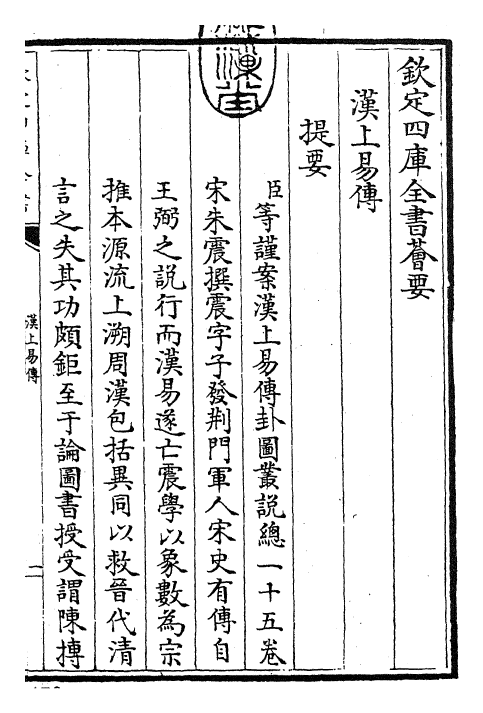 欽定四庫全書薈要
漢上易傳
提要
臣等謹案漢上易傳卦圖叢説總一十五卷
宋朱震撰震字子發荆門軍人宋史有傳自
王弼之説行而漢易遂亡震學以象數為宗
推本源流上溯周漢包括異同以救晉代清
言之失其功頗鉅至于論圖書授受謂陳摶
漢上易傳
一